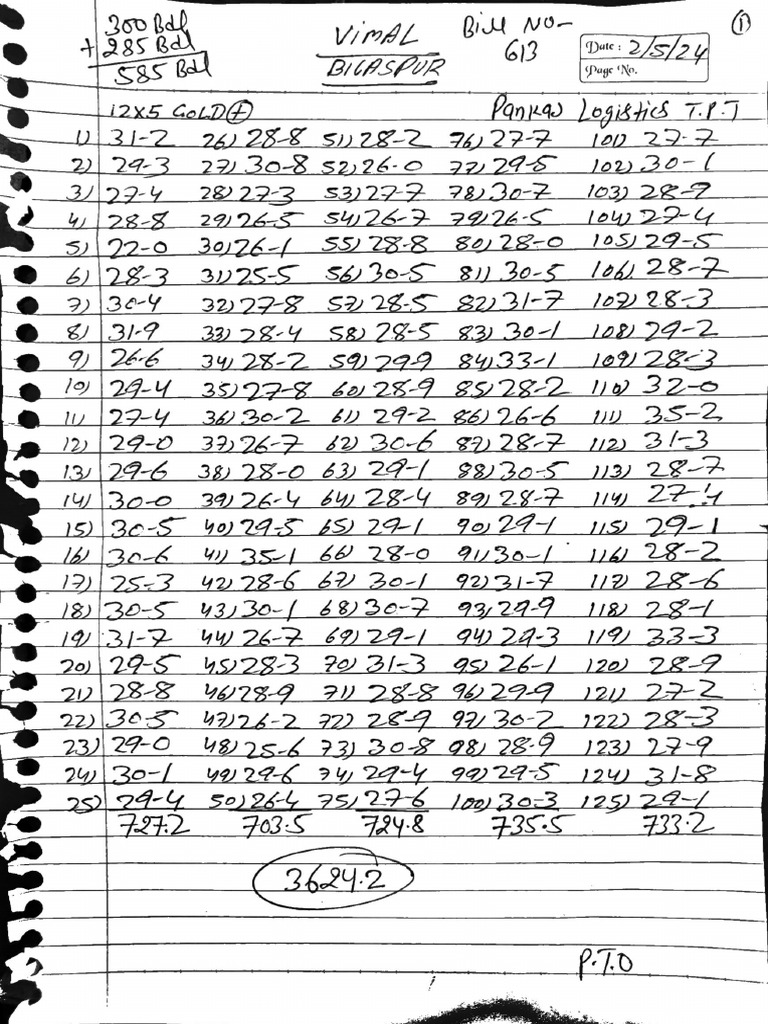 300 Bdl
+ 285 Bdl
585 Bdl
VIMAL
BILASPUR
Bill NO-
613
①
Date : 2/5/24
Page No.
12x5 GOLD⊕ Pankaj Logistics T.P.T
1) 31-2 26) 28-8 51) 28-2 76) 27-7 101) 27-7
2) 29-3 27) 30-8 52) 26-0 77) 29-5 102) 30-1
3) 27-4 28) 27-3 53) 27-7 78) 30-7 103) 28-9
4) 28-8 29) 26-5 54) 26-7 79) 26-5 104) 27-4
5) 22-0 30) 26-1 55) 28-8 80) 28-0 105) 29-5
6) 28-3 31) 25-5 56) 30-5 81) 30-5 106) 28-7
7) 30-4 32) 27-8 57) 28-5 82) 31-7 107) 28-3
8) 31-9 33) 28-4 58) 28-5 83) 30-1 108) 29-2
9) 26-6 34) 28-2 59) 29-9 84) 33-1 109) 28-3
10) 29-4 35) 27-8 60) 28-9 85) 28-2 110) 32-0
11) 27-4 36) 30-2 61) 29-2 86) 26-6 111) 35-2
12) 29-0 37) 26-7 62) 30-6 87) 28-7 112) 31-3
13) 29-6 38) 28-0 63) 29-1 88) 30-5 113) 28-7
14) 30-0 39) 26-4 64) 28-4 89) 28-7 114) 27-4
15) 30-5 40) 29-5 65) 29-1 90) 29-1 115) 29-1
16) 30-6 41) 35-1 66) 28-0 91) 30-1 116) 28-2
17) 25-3 42) 28-6 67) 30-1 92) 31-7 117) 28-6
18) 30-5 43) 30-1 68) 30-7 93) 29-9 118) 28-1
19) 31-7 44) 26-7 69) 29-1 94) 29-3 119) 33-3
20) 29-5 45) 28-3 70) 31-3 95) 26-1 120) 28-9
21) 28-8 46) 28-9 71) 28-8 96) 29-9 121) 27-2
22) 30-5 47) 26-2 72) 28-9 97) 30-2 122) 28-3
23) 29-0 48) 25-6 73) 30-8 98) 28-9 123) 27-9
24) 30-1 49) 29-6 74) 29-4 99) 29-5 124) 31-8
25) 29-4 50) 26-4 75) 27-6 100) 30-3 125) 29-1
727.2 703.5 724.8 735.5 733.2
3624.2
P.T.O